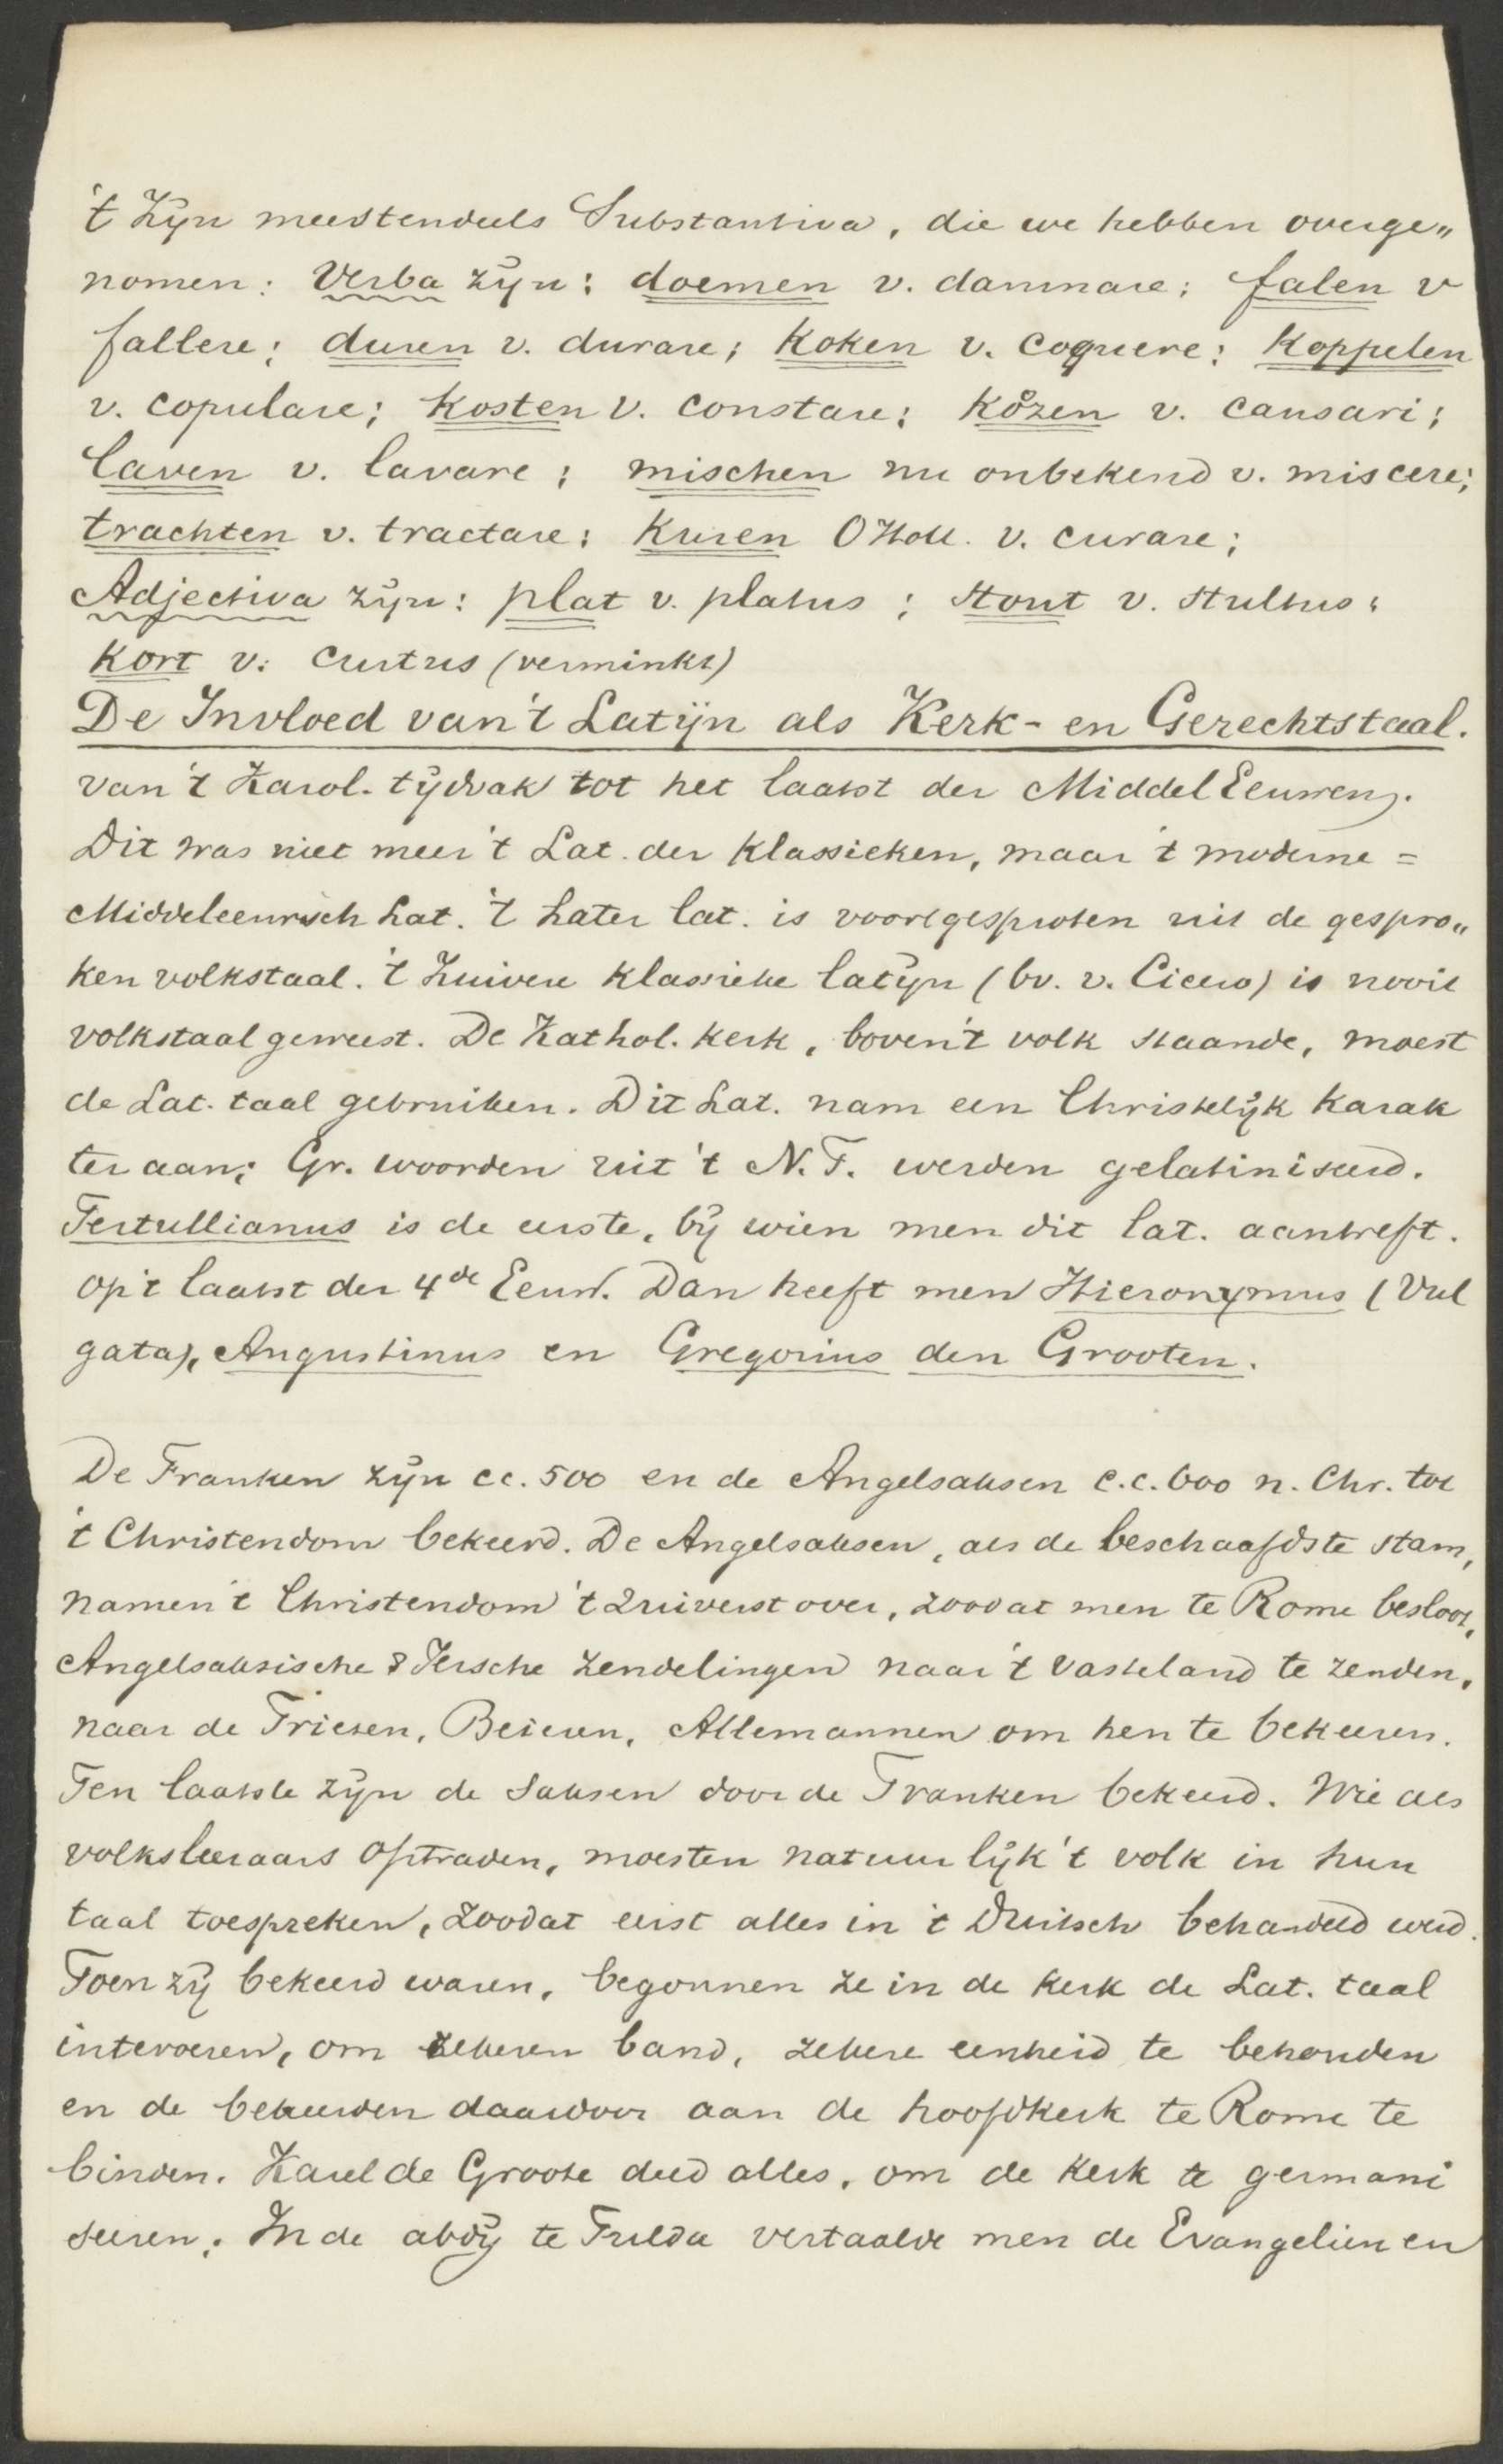 't Zijn meestendeels Substantiva, die we hebben overge„
nomen: Verba zijn: doemen v. damnare; falen v
fallere; duren v. durare; koken v. coquere; Koppelen
v. copulare; kosten v. constare; kozen v. causari;
laven v. lavare; mischen nu onbekend v. miscere;
trachten v. tractare; Kuren OHoll. v. curare;
Adjectiva zijn: plat v. platus; stout v. stultus;
kort v. curtus (verminkt)
De Invloed van 't Latijn als Kerk- en Gerechtstaal.
van 't Karol. tijdvak tot het laatst der MiddelEeuwen.
Dit was niet meer 't Lat. der klassieken, maar 't moderne =
Middeleeuwsch Lat. 't Later lat. is voortgesproten uit de gespro„
ken volkstaal. 't Zuivere klassieke latijn (bv. v. Cicero) is nooit
volkstaal geweest. De Kathol. kerk, boven 't volk staande, moest
de Lat. taal gebruiken. Dit Lat. nam een Christelijk karak
ter aan; Gr. woorden uit 't N.T. werden gelatiniseerd.
Tertullianus is de eerste, bij wien men dit lat. aantreft.
op 't laatst der 4de Eeuw. Dan heeft men Hieronymus (Vul
gata), Augustinus en Gregorius den Grooten.
De Franken zijn cc. 500 en de Angelsaksen c.c. 600 n. Chr. tot
't Christendom bekeerd. De Angelsaksen, als de beschaafdste stam,
namen 't Christendom 't zuiverst over, zoodat men te Rome besloot,
Angelsaksische & Iersche zendelingen naar 't vasteland te zenden,
naar de Friezen, Beieren, Allemannen om hen te bekeeren.
Ten laatste zijn de Saksen door de Franken bekeerd. Wie als
volksleeraars optraden, moesten natuurlijk 't volk in hun
taal toespreken, zoodat eerst alles in 't Duitsch behandeld werd.
Toen zij bekeerd waren, begonnen ze in de kerk de Lat. taal
intevoeren, om zekeren band, zekere eenheid te behouden
en de bekeerden daardoor aan de hoofdkerk te Rome te
binden. Karel de Groote deed alles, om de kerk te germani
seeren. In de abdij te Fulda vertaalde men de Evangeliën en